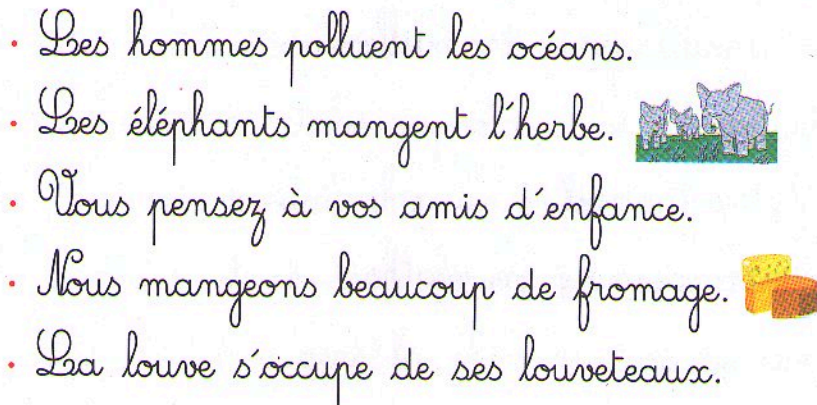 · Les hommes polluent les océans.
· Les éléphants mangent l'herbe.
· Vous pensez à vos amis d'enfance.
· Nous mangeons beaucoup de fromage.
· La louve s'occupe de ses louveteaux.